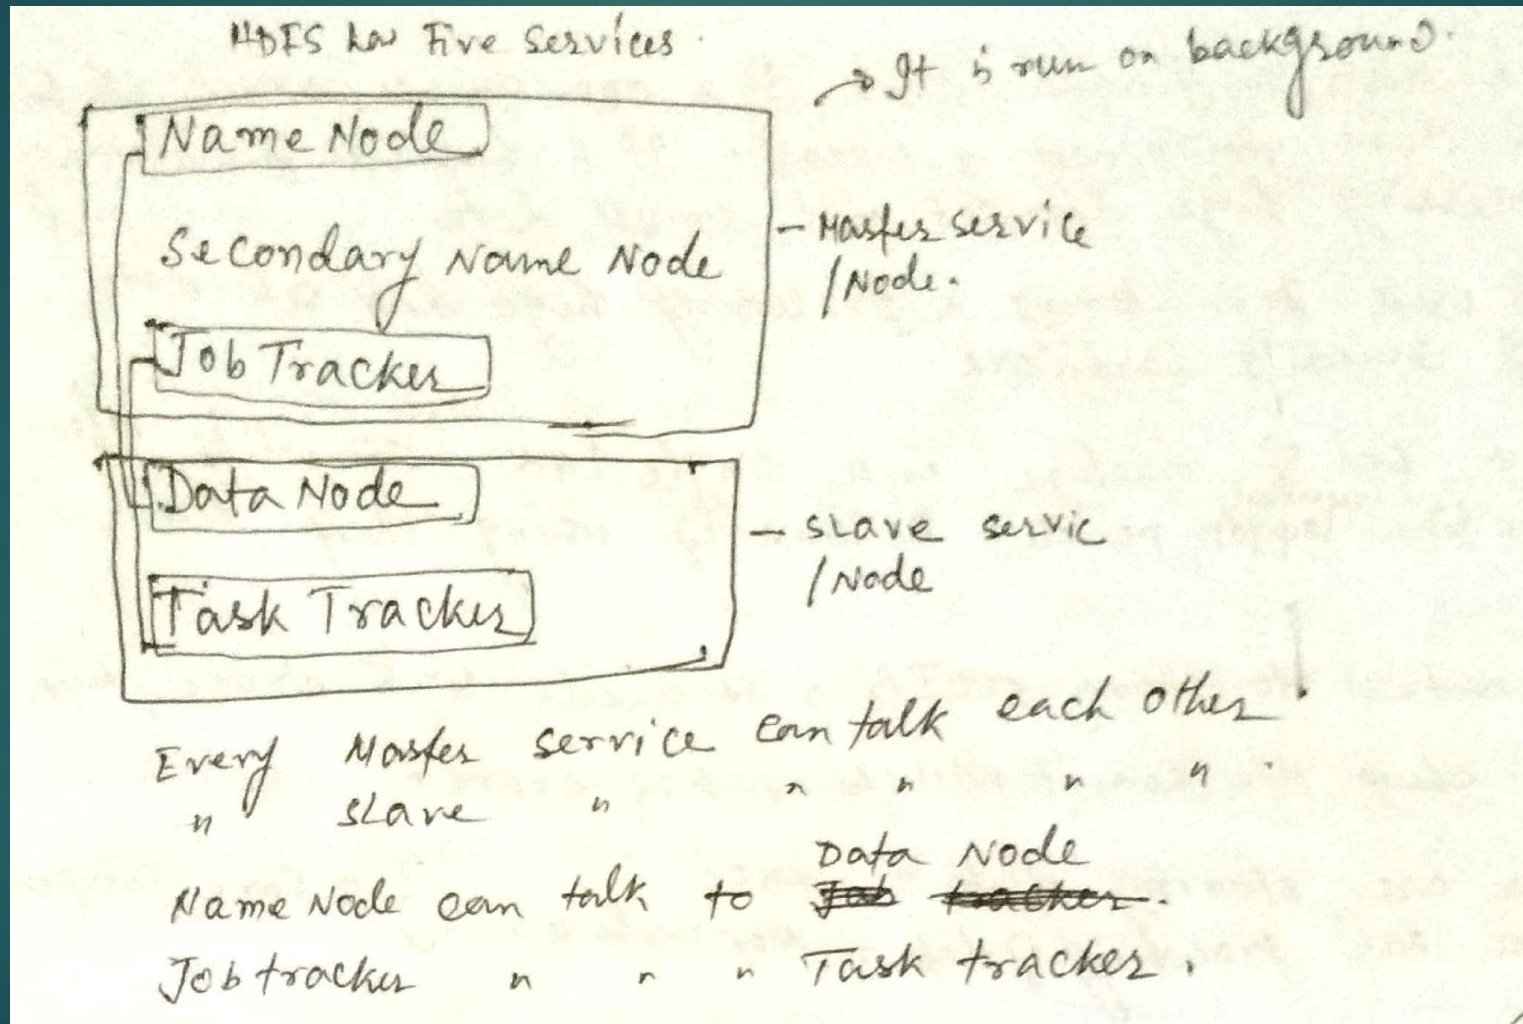 HDFS has Five Services.
→ It is run on background.
Name Node
Secondary Name Node
Job Tracker
- Master service
/Node.
Data Node
Task Tracker
- Slave servic
/Node
Every Master service can talk each other
" slave " " " " " .
Data Node
Name Node can talk to Job tracker.
Job tracker " " " Task tracker.